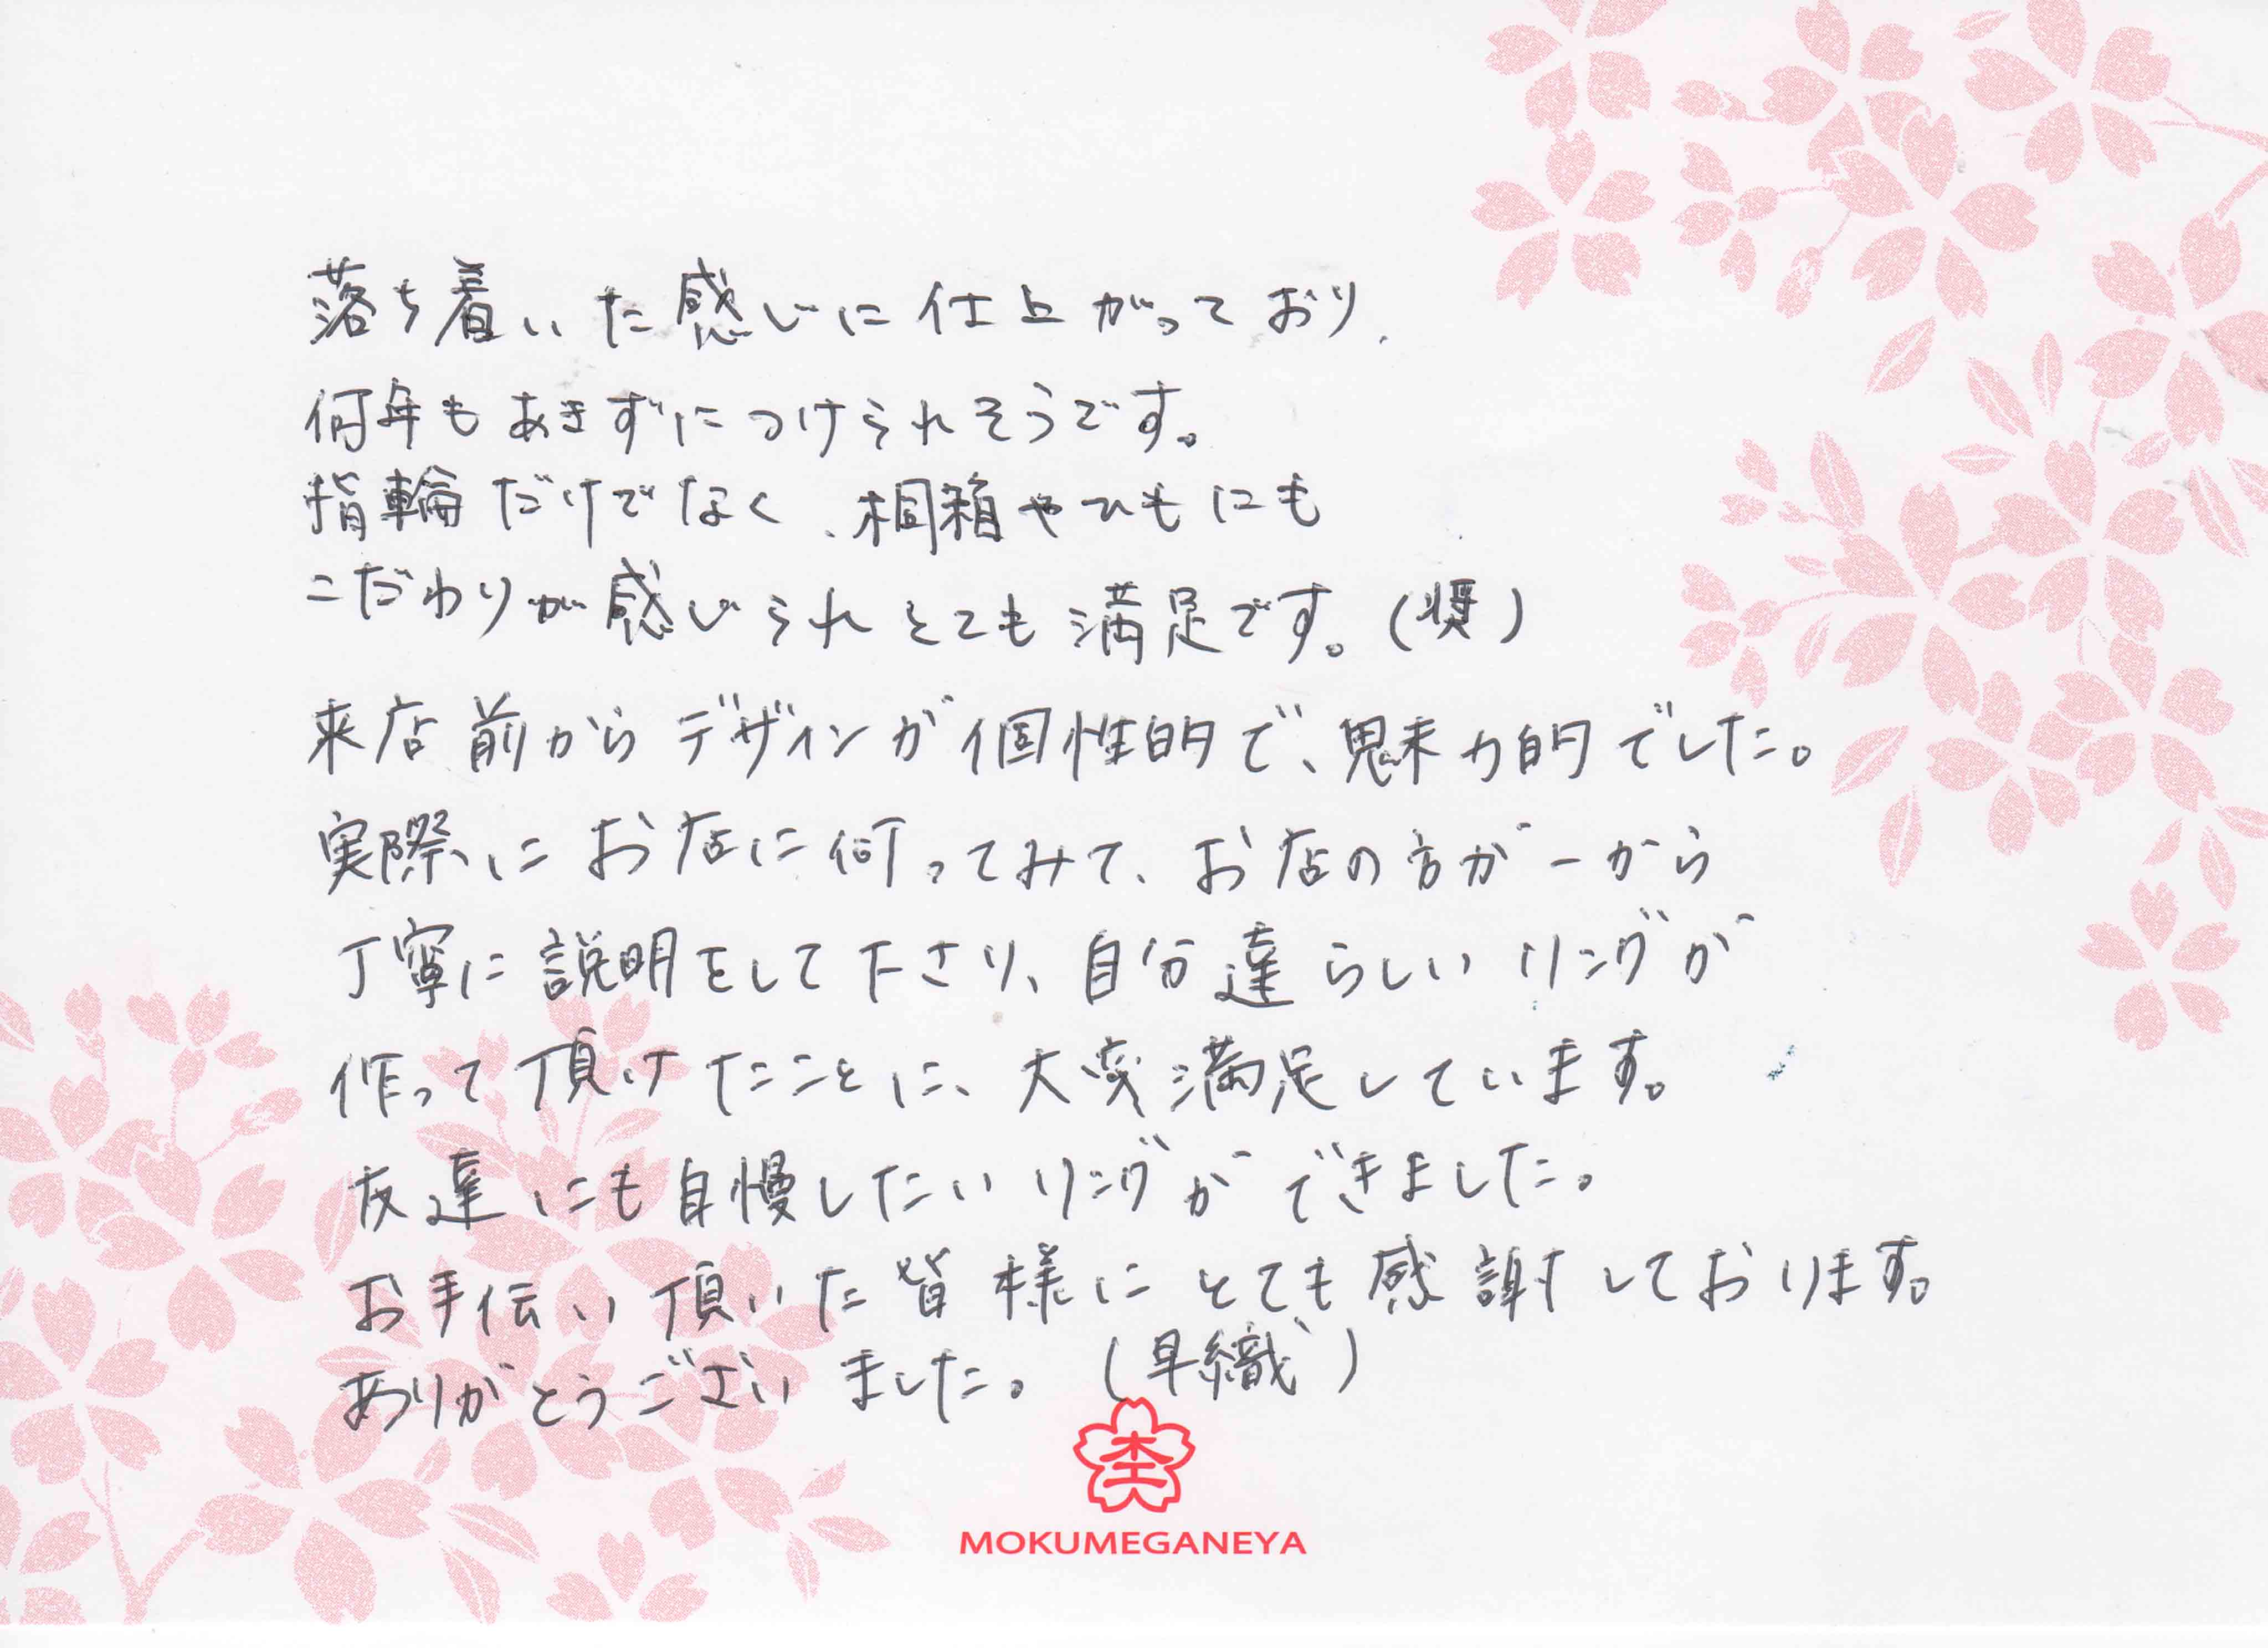 落ち着いた感じに仕上がっており、
何年もあきずにつけられそうです。
指輪だけでなく、桐箱やひもにも
こだわりが感じられとても満足です。(奨)
来店前からデザインが個性的で、魅力的でした。
実際にお店に伺ってみて、お店の方が一から
丁寧に説明をして下さり、自分達らしいリングが
作って頂けたことに、大変満足しています。
友達にも自慢したいリングができました。
お手伝い頂いた皆様にとても感謝しております。
ありがとうございました。(早織)
杢
MOKUMEGANEYA